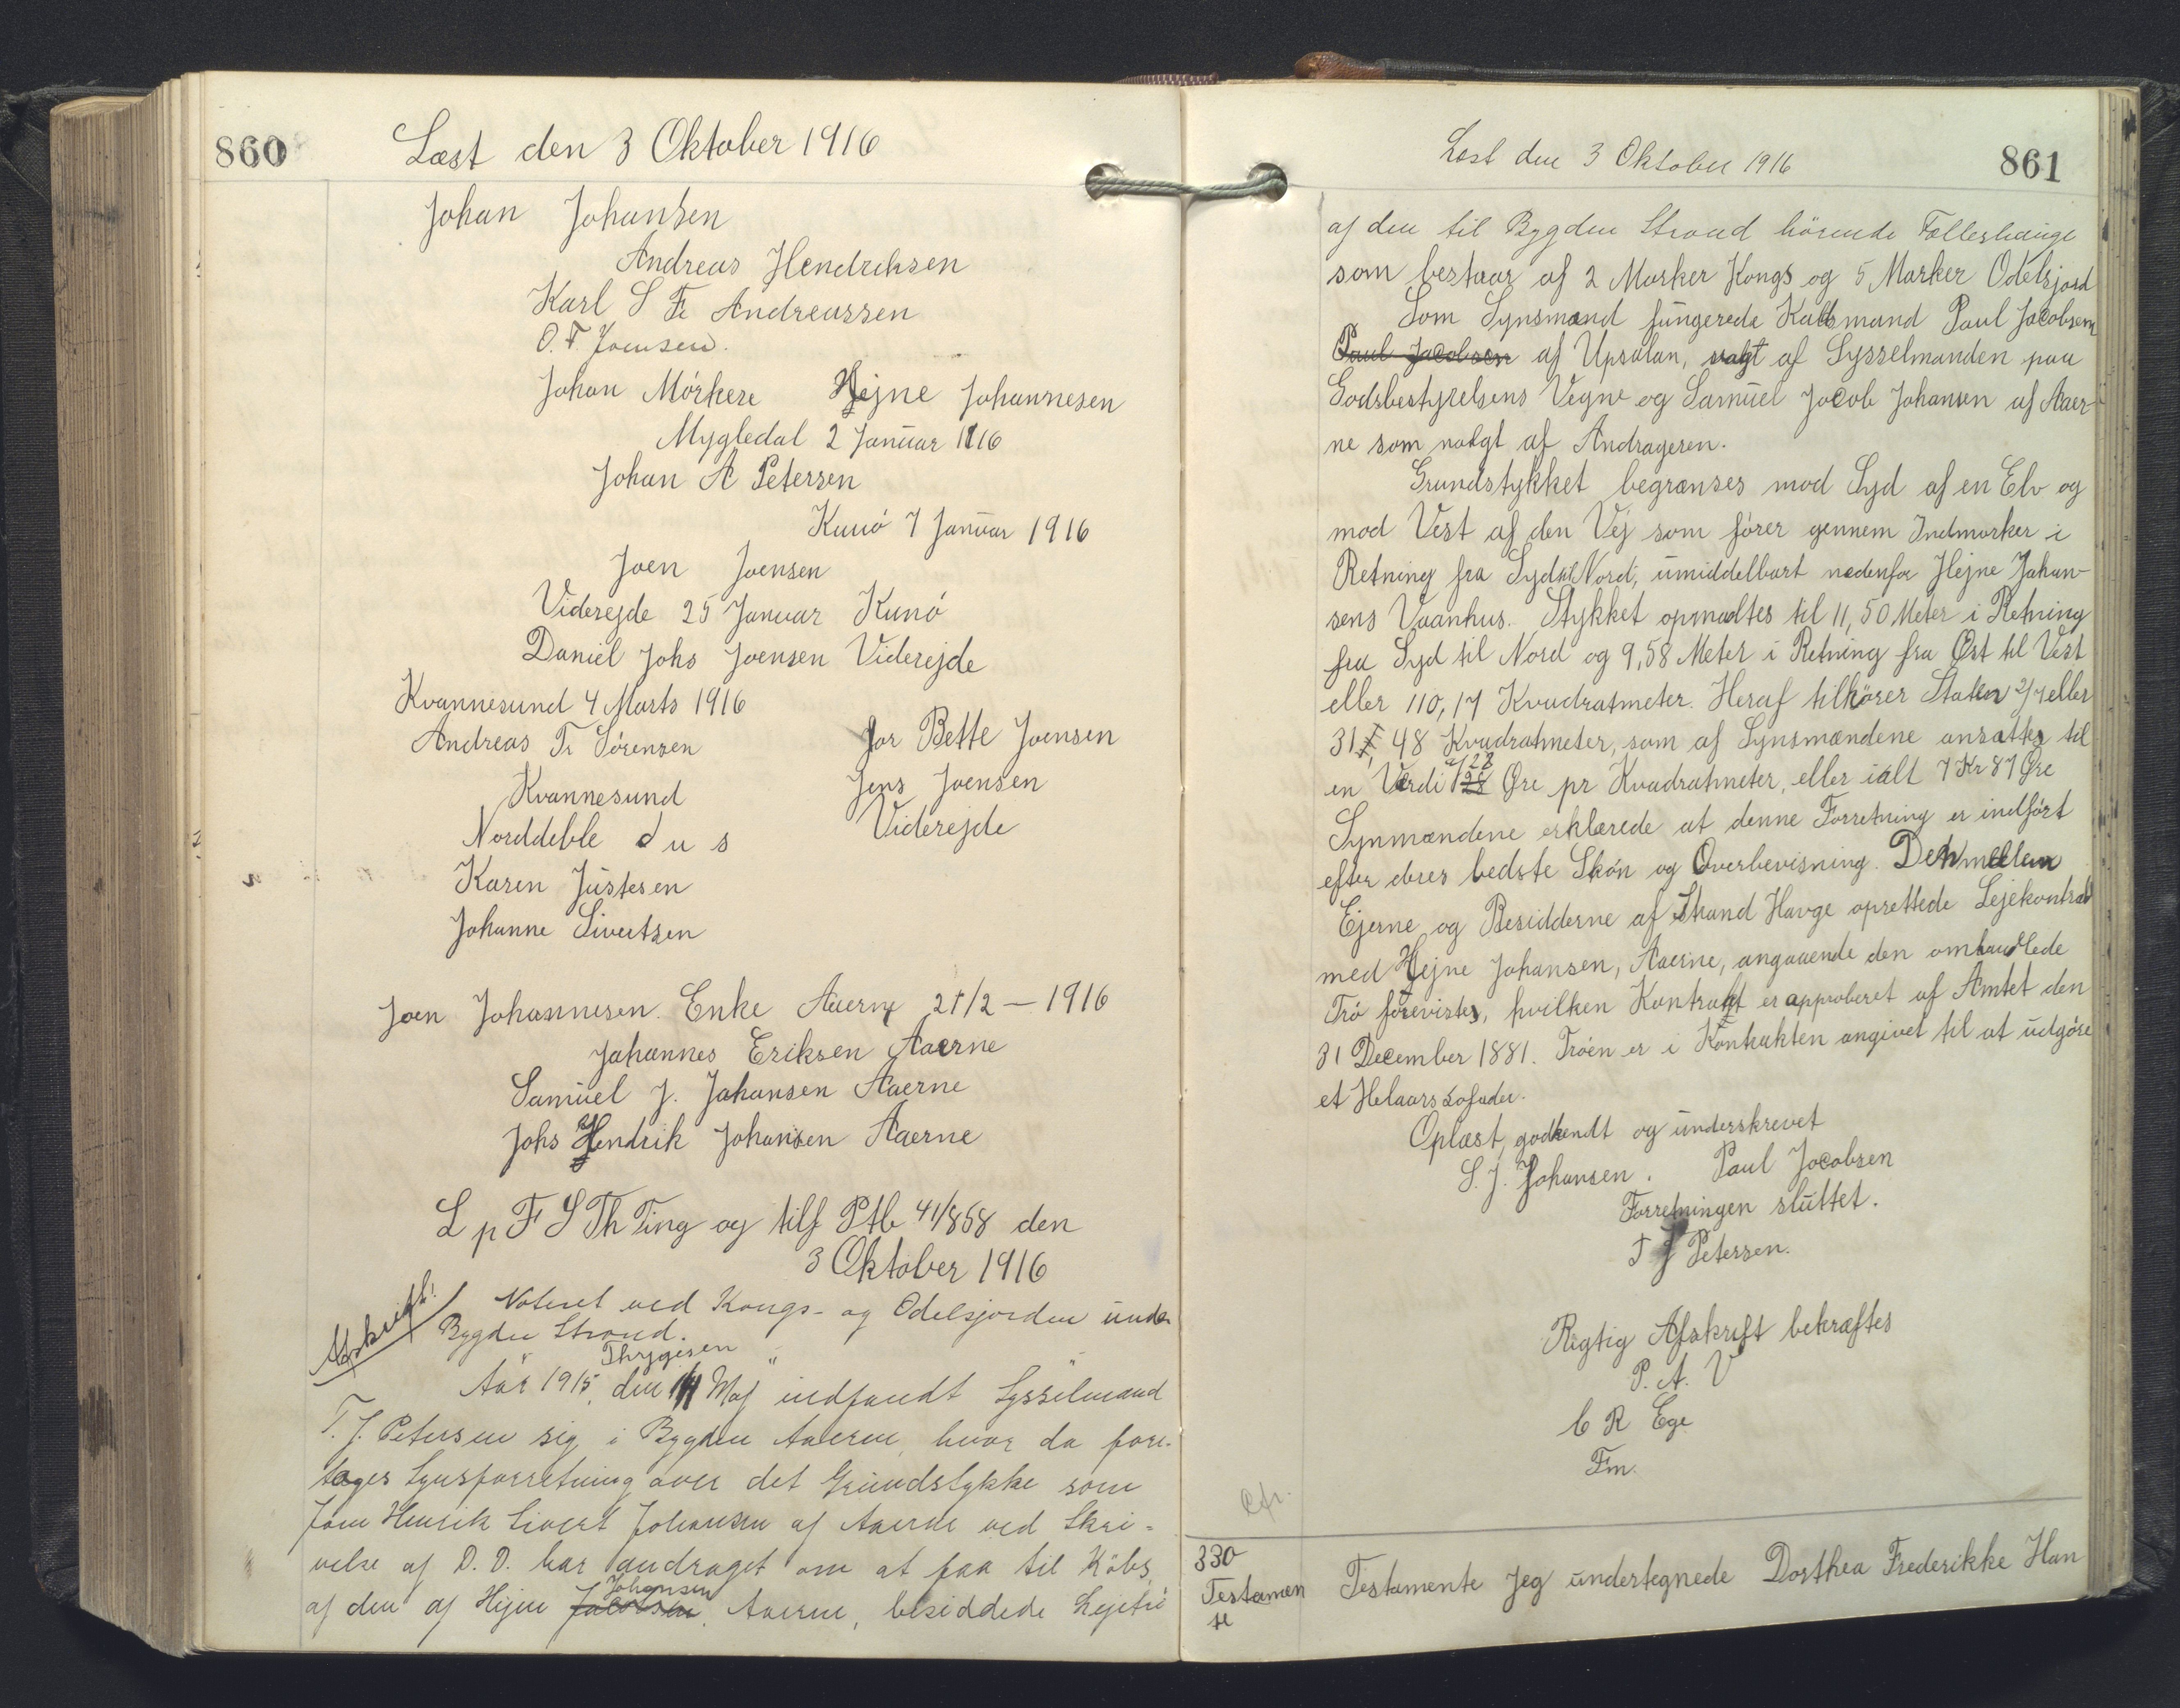 860
Læst den 3 Oktober 1916
Johan Johansen
Andreas Hendriksen
Karl S Fr Andreassen
O. F. Joensen.
Johan Mørkere Hejne Johannesen
Mygledal 2 Januar 1916
Johan A Petersen
Kunö 7 Januar 1916
Joen Joensen
Viderejde 25 Januar Kunö
Daniel Johs Joensen Viderejde
Kvannesund 4 Marts 1916
Andreas Tr Sørensen
Kvannesund
Norddeble d u s
Karen Justesen
Johanne Sivertsen
Jor Bette Joensen
Jens Joensen
Viderejde
Joen Johannesen Enke Aaerne 21/2 – 1916
Johannes Eriksen Aaerne
Samuel J. Johansen Aaerne
Johs Hendrik Johansen Aaerne
L p F S Th Ting og tilf Ptb 41/858 den
3 Oktober 1916
Afskrift!
Noteret ved Kongs- og Odelsjorden under
Bygden Strand.
Thrygesen
Aar 1915, den 11 Maj indfandt Sysselmand
T. J. Petersen sig i Bygden Aaerne, hvor da fore-
toges Synsforretning over det Grundstykke som
Joen Henrik Sivert Johansen af Aaerne ved Skri-
velse af D. D. har andraget om at faa til Købs
Johansen
af den af Hejne Jacobsen, Aaerne, besiddede Lejetrö
861
Læst den 3 Oktober 1916
af den til Bygden Strand hörende Fælleshauge
som bestaar af 2 Marker Kongs og 5 Marker Odelsjord
Som Synsmænd fungerede Kaldsmand Poul Jacobsen
Paul Jacobsen af Upsalan, valgt af Sysselmanden paa
Godsbestyrelsens Vegne og Samuel Jacob Johansen af Aaer-
ne som valgt af Andrageren.
Grundstykket begrænses mod Syd af en Elv og
mod Vest af den Vej som fører gennem Indmarker i
Retning fra Syd til Nord, umiddelbart nedenfor Hejne Johan-
sens Vaanhus. Stykket opmaaltes til 11,50 Meter i Retning
fra Syd til Nord og 9,58 Meter i Retning fra Øst til Vest
eller 110,17 Kvadratmeter. Heraf tilhører Staten 2/7 eller
31, 48 Kvadratmeter, som af Synsmændene ansattes til
en Værdi af 28 Øre pr Kvadratmeter, eller ialt 7 Kr 87 Øre
Synmændene erklærede at denne Forretning er indført
efter deres bedste Skön og Overbevisning. Den mellem
Ejerne og Besidderne af Strand Havge oprettede Lejekontrakt
med Hejne Johansen, Aaerne, angaaende den omhandlede
Trö forevistes, hvilken Kontrakt er approberet af Amtet den
31 December 1881. Tröen er i Kontrakten angivet til at udgöre
et Helaarslofoder.
Oplæst, godkendt og underskrevet
S. J. Johansen. Paul Jacobsen
Forretningen sluttet.
T J Petersen.
Rigtig Afskrift bekræftes
P. A. V
C R Ege
Fm.
Cfr.
330
Testamen
te
Testamente Jeg undertegnede Dorthea Frederikke Han